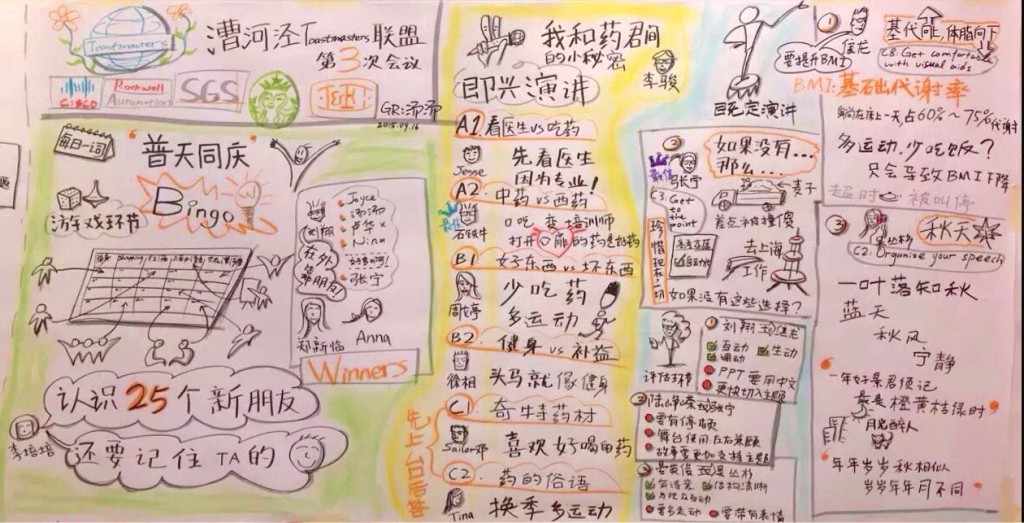 Toastmasters
漕河泾Toastmasters联盟
第3次会议
CISCO
Rockwell
Automation
SGS
GR:沥沥
2015.09.16
每日一词
"普天同庆"
Bingo
游戏环节
Joyce
Nina
张宁
郑新临
Anna
Winners
认识25个新朋友
李培培
还要记住TA的
我和药君间
的小秘密
李骏
即兴演讲
A1 看医生vs吃药
Jesse
先看医生
因为专业!
A2. 中药vs西药
石铁牛
口吃 变 培训师
打开心扉的药是好药
B1 好东西vs坏东西
少吃药
多运动
B2. 健身vs补益
徐相
头马就像健身
C1 奇特药材
Sailor邓
喜欢好喝的药
C2. 药的俗语
Tina
换季多运动
先上台后答
备稿演讲
如果没有...
那么...
张宁
C3. Get
to the
point
差点被撞傻
麦子
珍惜现在的一切
去上海
工作
如果没有这些选择?
评估环节
互动
生动
PPT要用中文
更快切入主题
要有停顿
舞台使用左右兼顾
结构清晰
与观众互动
要多走动
要带有表情
要提升BMI
基代向上, 体脂向下
C8 Get comfortable
with visual aids
BMI:基础代谢率
躺在床上一天,占60%~75%代谢
多运动,少吃饭?
只会导致BMI下降
超时 被叫停
秋天
C2. Organise your speech
一叶落知秋
蓝天
秋风
宁静
一年好景君须记
最是橙黄桔绿时
年年岁岁秋相似
岁岁年年月不同